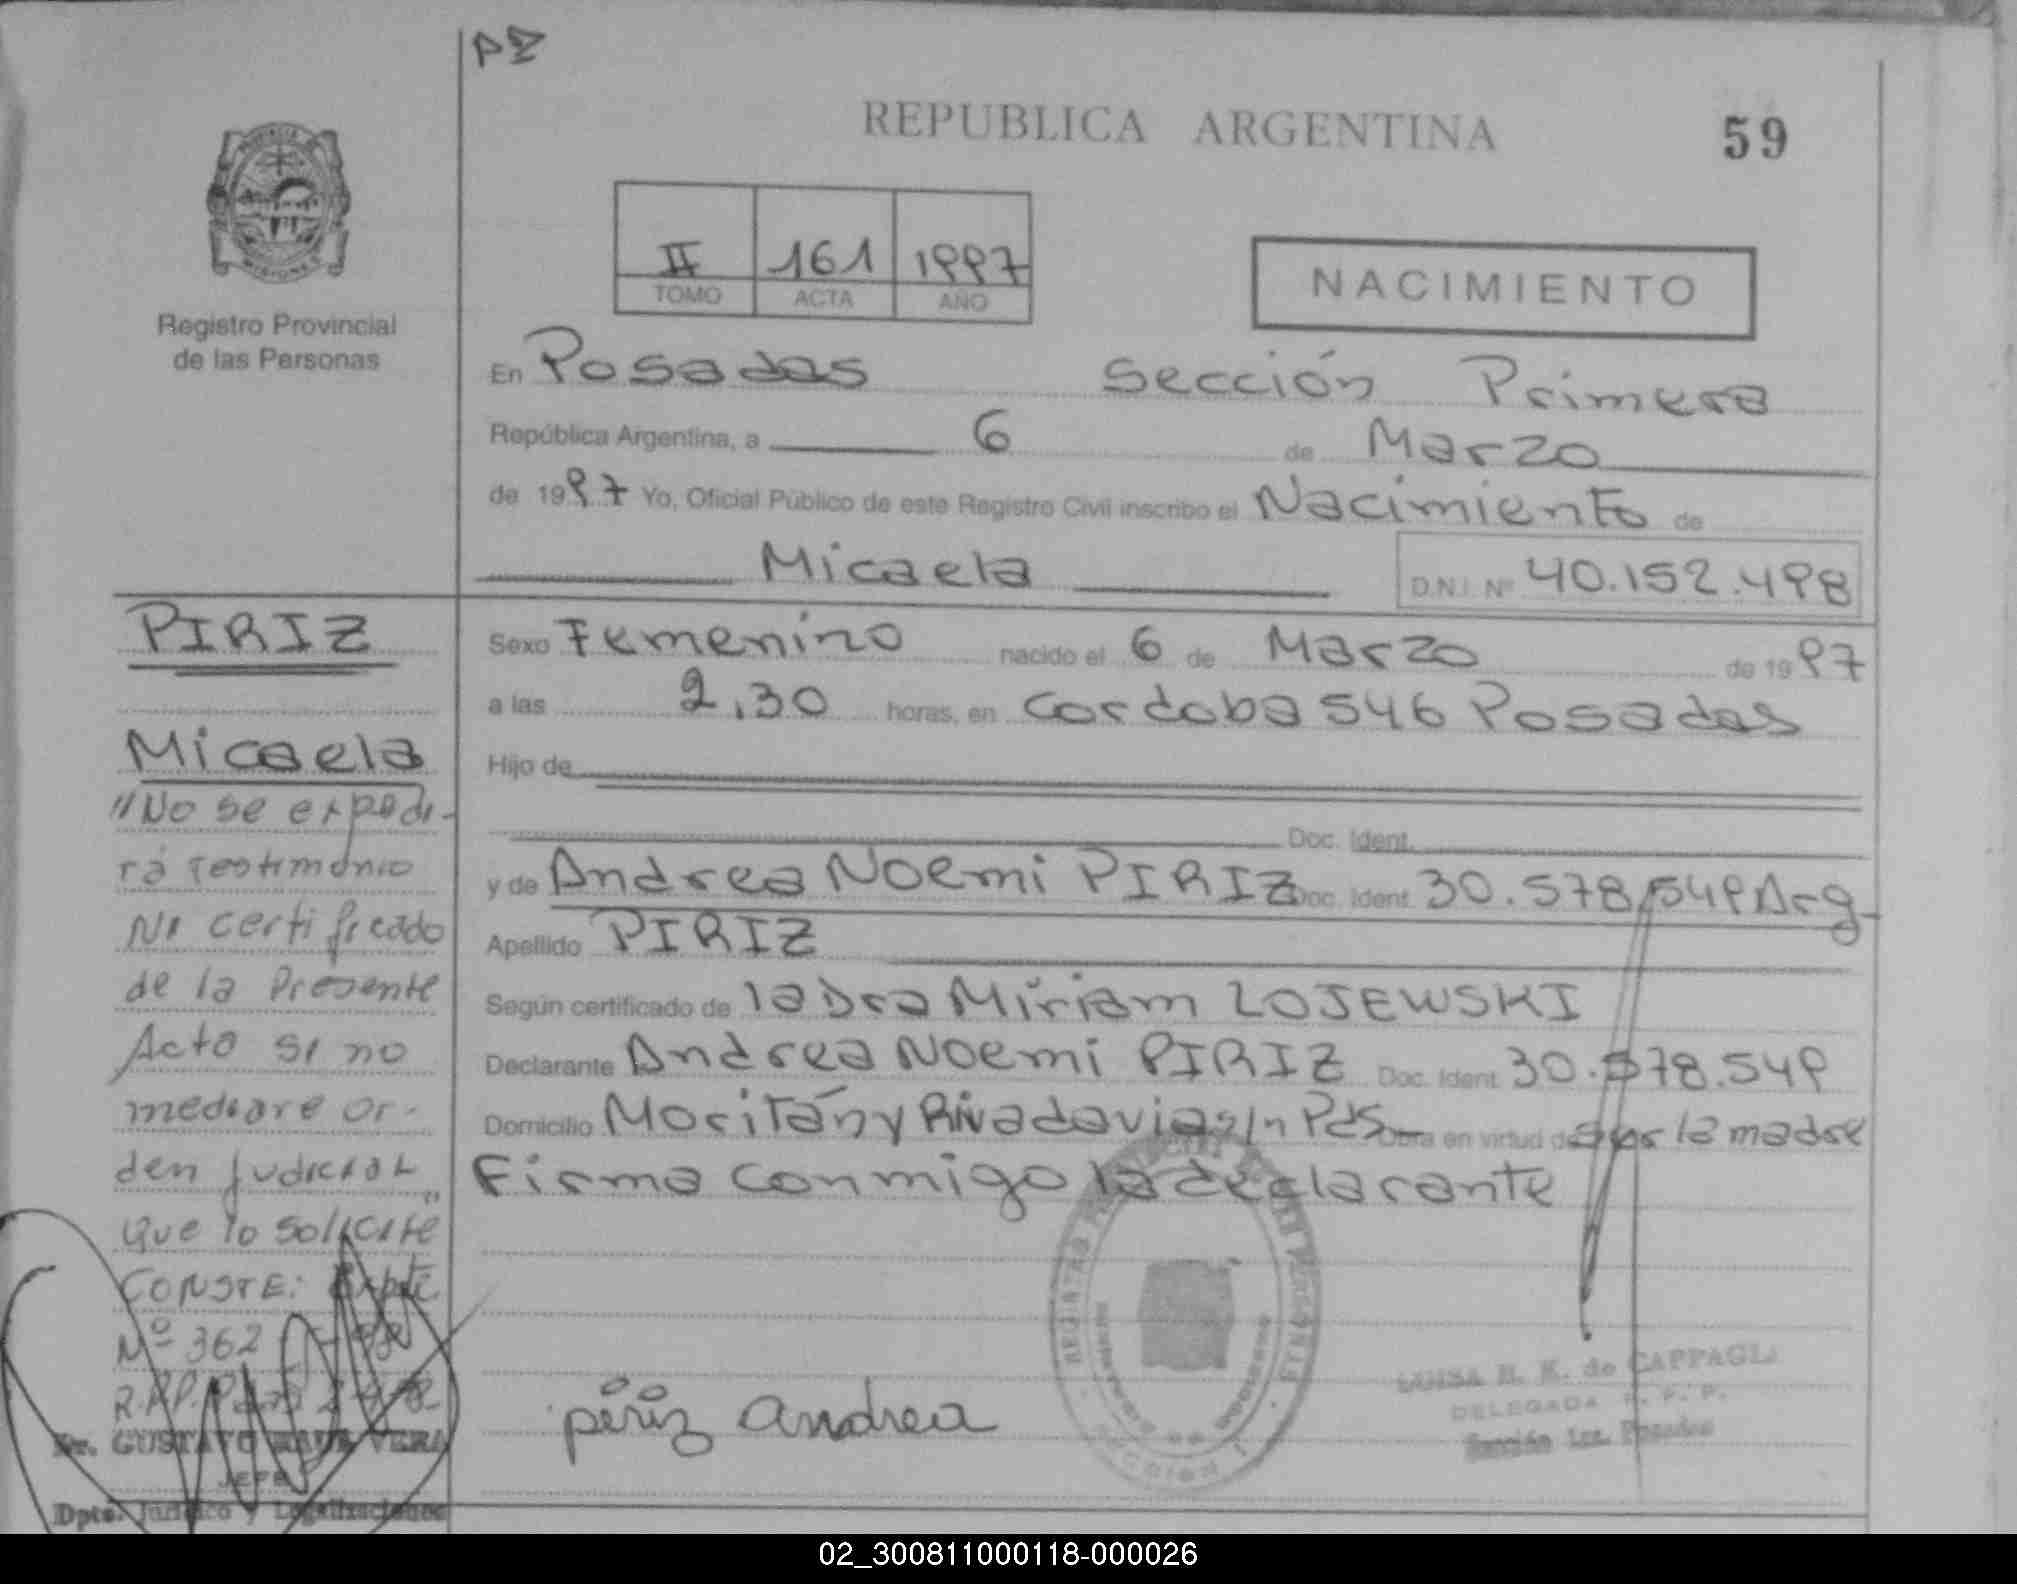 PZ
REPUBLICA ARGENTINA
59
II 161 1997
TOMO ACTA AÑO
NACIMIENTO
MISIONES
Registro Provincial
de las Personas
En Posadas Sección Primera
República Argentina, a 6 de Marzo
de 1997 Yo, Oficial Público de este Registro Civil inscribo el Nacimiento de
Micaela
D.N.I. Nº 40.152.498
Sexo Femenino nacido el 6 de Marzo de 1997
a las 2,30 horas, en Cordoba 546 Posadas
Hijo de
Doc. Ident.
y de Andrea Noemi PIRIZ Doc. Ident. 30.578.549 Arg
Apellido PIRIZ
Según certificado de la Dra Miriam LOJEWSKI
Declarante Andrea Noemi PIRIZ Doc. Ident. 30.578.549
Domicilio Moritán y Rivadavia s/n Pds Obra en virtud de ser la madre
Firma conmigo la declarante
piriz andrea
LUISA H. K. de CAPPAGLI
DELEGADA R. P. P.
Sección 1ra. Posadas
PIRIZ
Micaela
"No se expedi-
rá testimonio
Ni certificado
de la Presente
Acta si no
mediare or-
den judicial
que lo solicite"
CONSTE: Expte
Nº 362
R.P.P.
Dr. GUSTAVO RAUL VERA
JEFE
Dpto. Jurídico y Legalizaciones
02_300811000118-000026